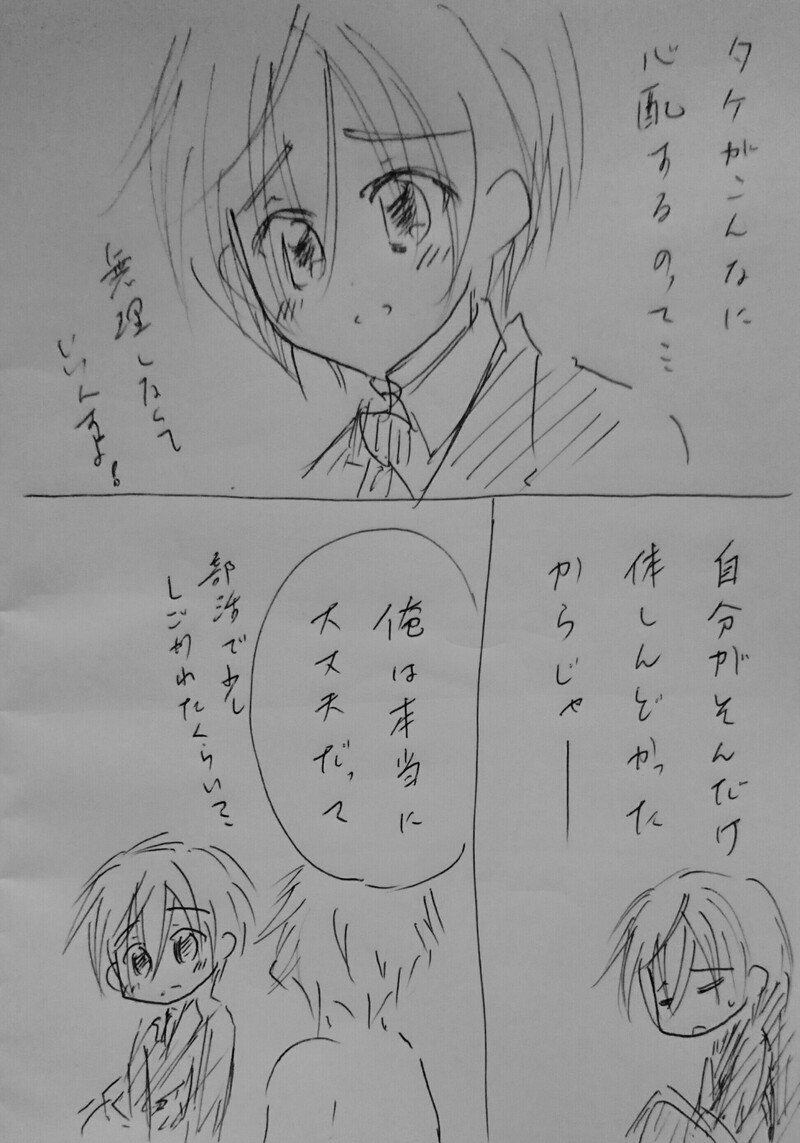 タケがこんなに
心配するのって…
無理しなくて
いいんすよ!
自分がそんだけ
体しんどかった
からじゃー
俺は本当に
大丈夫だって
部活で少し
しごかれたくらいで